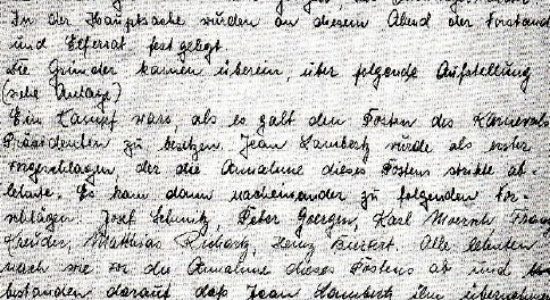 In der Hauptsache wurden an diesem Abend der Vorstand
und Elferrat festgelegt.
Die Gründer kamen überein, über folgende Aufstellung
(siehe Anlage)
Ein Kampf wars, als es galt den Posten des Karnevals
Präsidenten zu besitzen. Jean Lambertz wurde als erster
vorgeschlagen, der die Annahme dieses Postens strikte ab-
lehnte. Es kam dann nacheinander zu folgenden Vor-
schlägen: Josef Schmitz, Peter Goergen, Karl Franz
Kreuder, Matthias Heinz Alle lehnten
nach wie vor die Annahme dieses Postens ab und
bestanden darauf, daß Jean Lambertz ihn